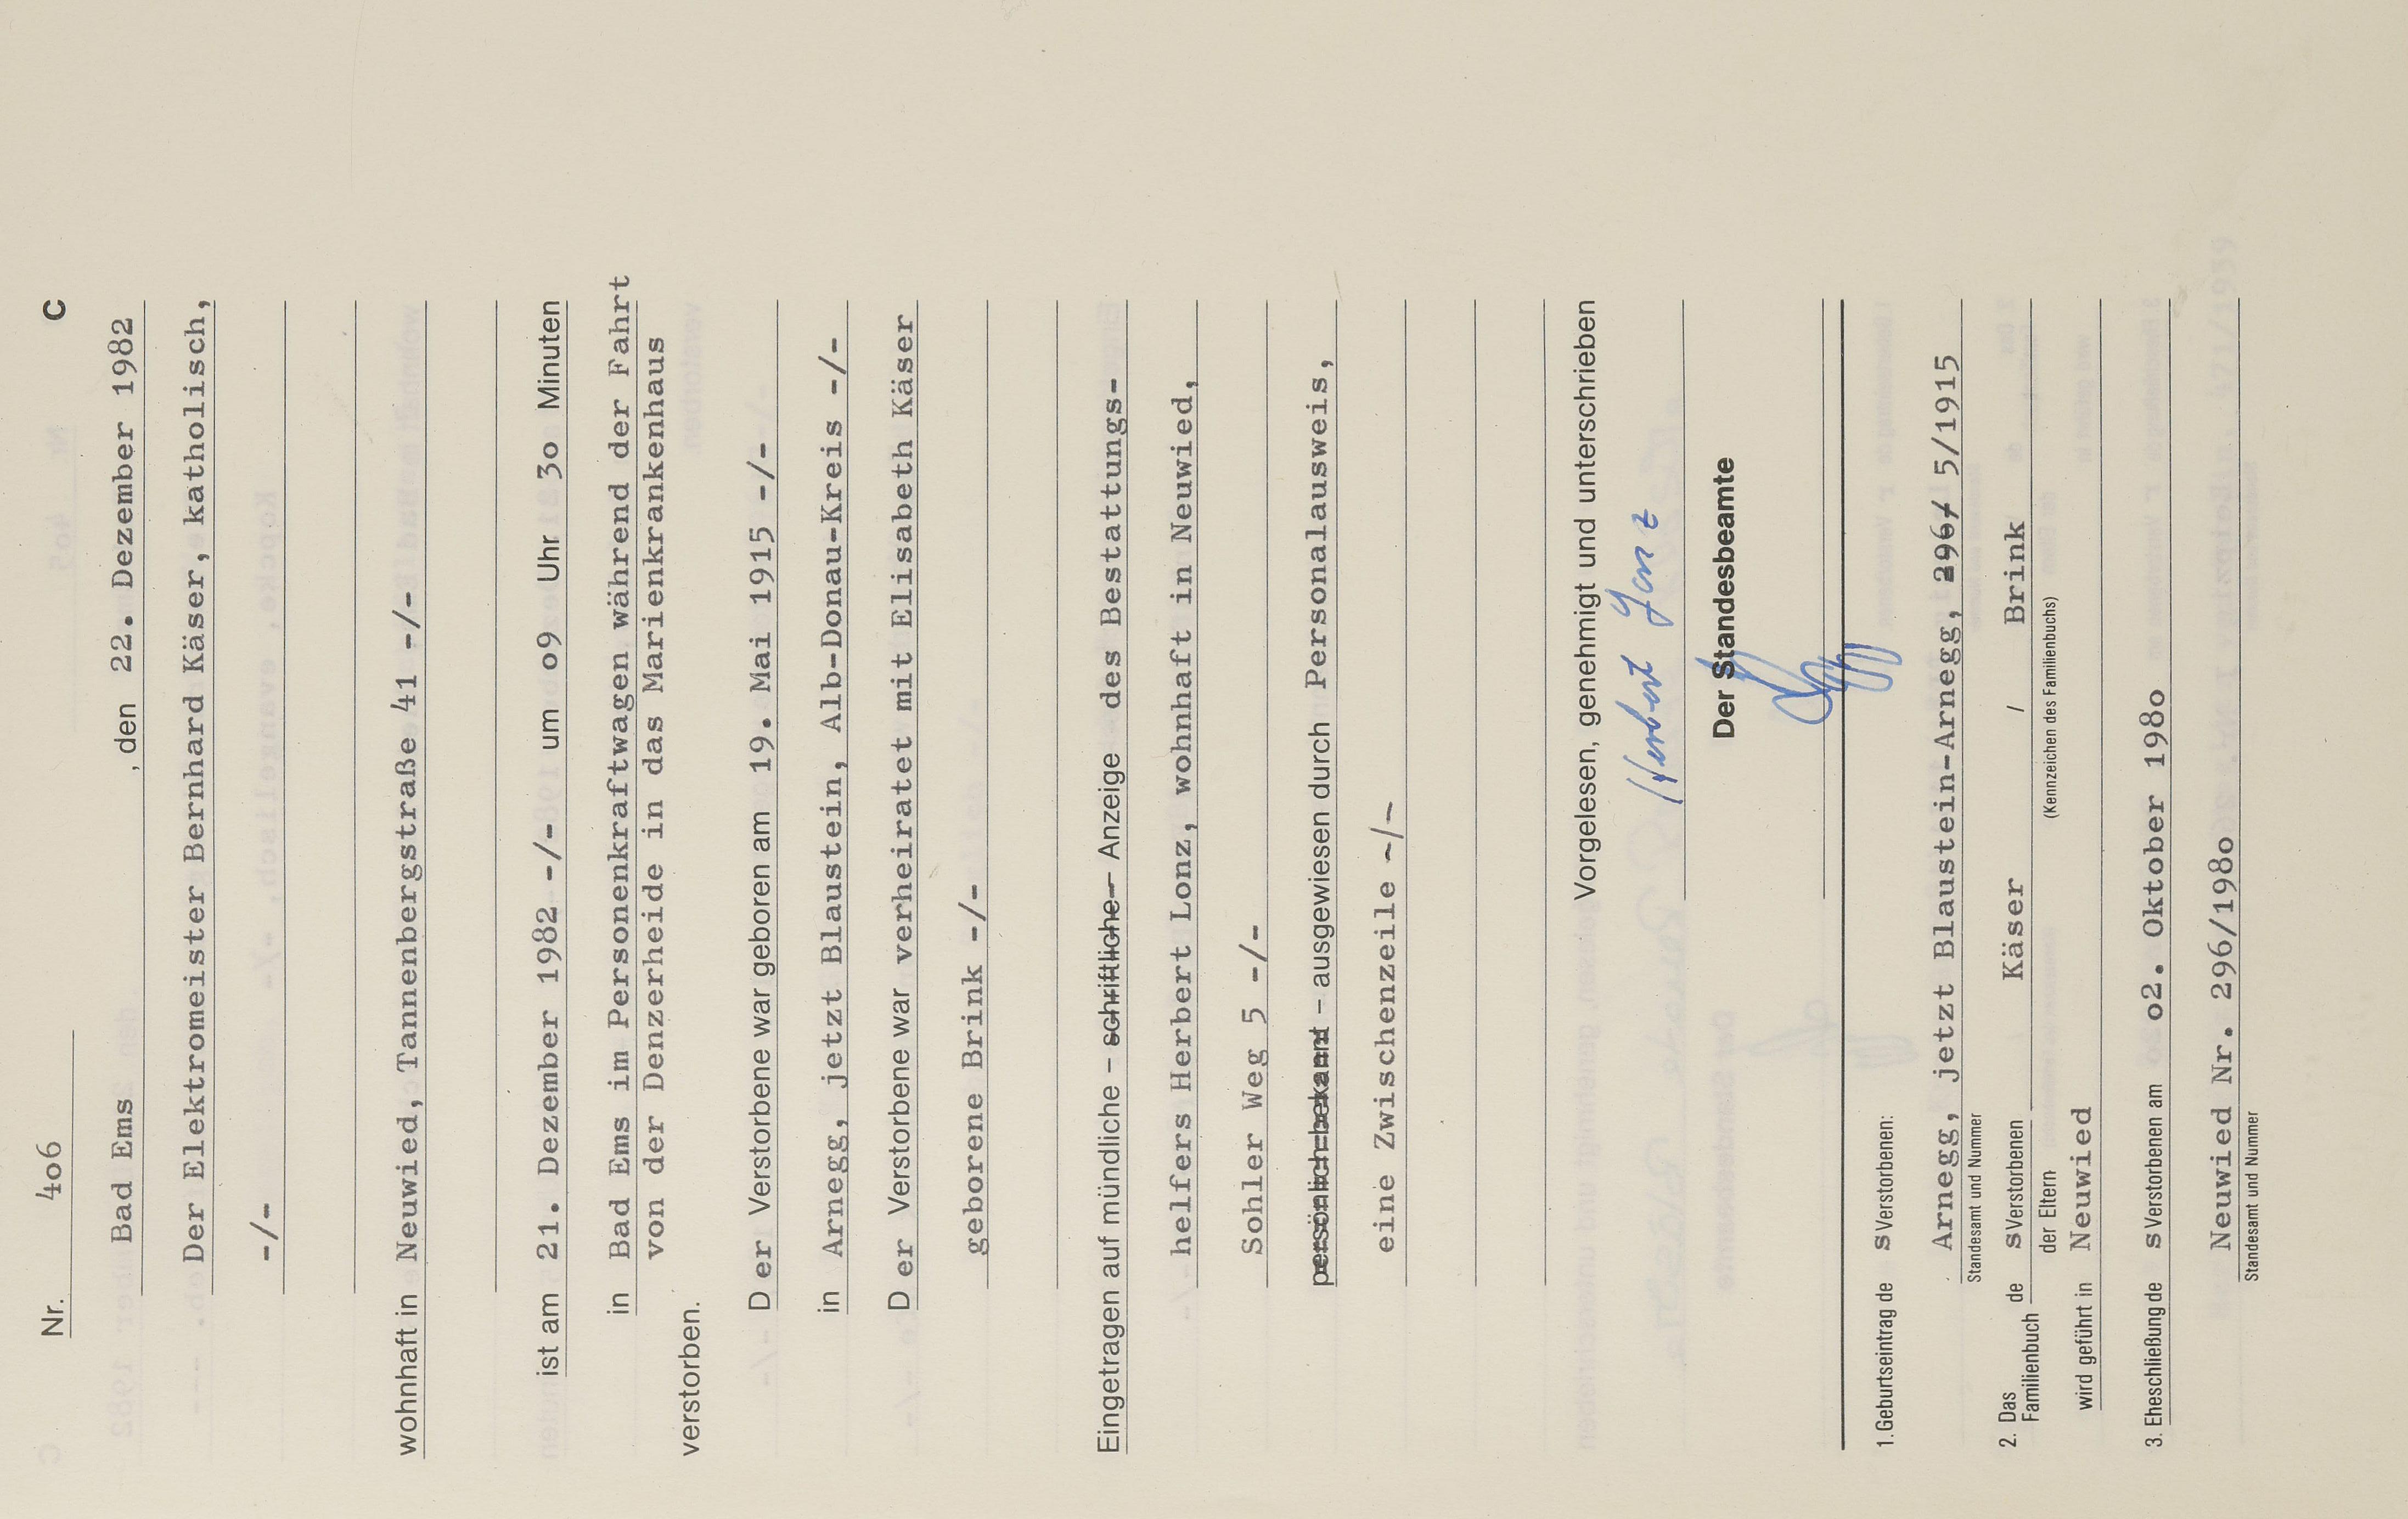 Nr. 4o6 C
Bad Ems , den 22. Dezember 1982
Der Elektromeister Bernhard Käser, katholisch,
-/-
wohnhaft in Neuwied, Tannenbergstraße 41 -/-
ist am 21. Dezember 1982 -/- um o9 Uhr 3o Minuten
in Bad Ems im Personenkraftwagen während der Fahrt
von der Denzerheide in das Marienkrankenhaus
verstorben.
D er Verstorbene war geboren am 19. Mai 1915 -/-
in Arnegg, jetzt Blaustein, Alb-Donau-Kreis -/-
D er Verstorbene war verheiratet mit Elisabeth Käser
geborene Brink -/-
Eingetragen auf mündliche – schriftliche – Anzeige des Bestattungs-
helfers Herbert Lonz, wohnhaft in Neuwied,
Sohler Weg 5 -/-
persönlich bekannt – ausgewiesen durch Personalausweis,
eine Zwischenzeile -/-
Vorgelesen, genehmigt und unterschrieben
Herbert
Der Standesbeamte
1. Geburtseintrag de s Verstorbenen:
Arnegg, jetzt Blaustein-Arnegg, 296/ 5/1915
Standesamt und Nummer
2. Das Familienbuch de s Verstorbenen Käser / Brink
der Eltern (Kennzeichen des Familienbuchs)
wird geführt in Neuwied
3. Eheschließung de s Verstorbenen am o2. Oktober 198o
Neuwied Nr. 296/198o
Standesamt und Nummer